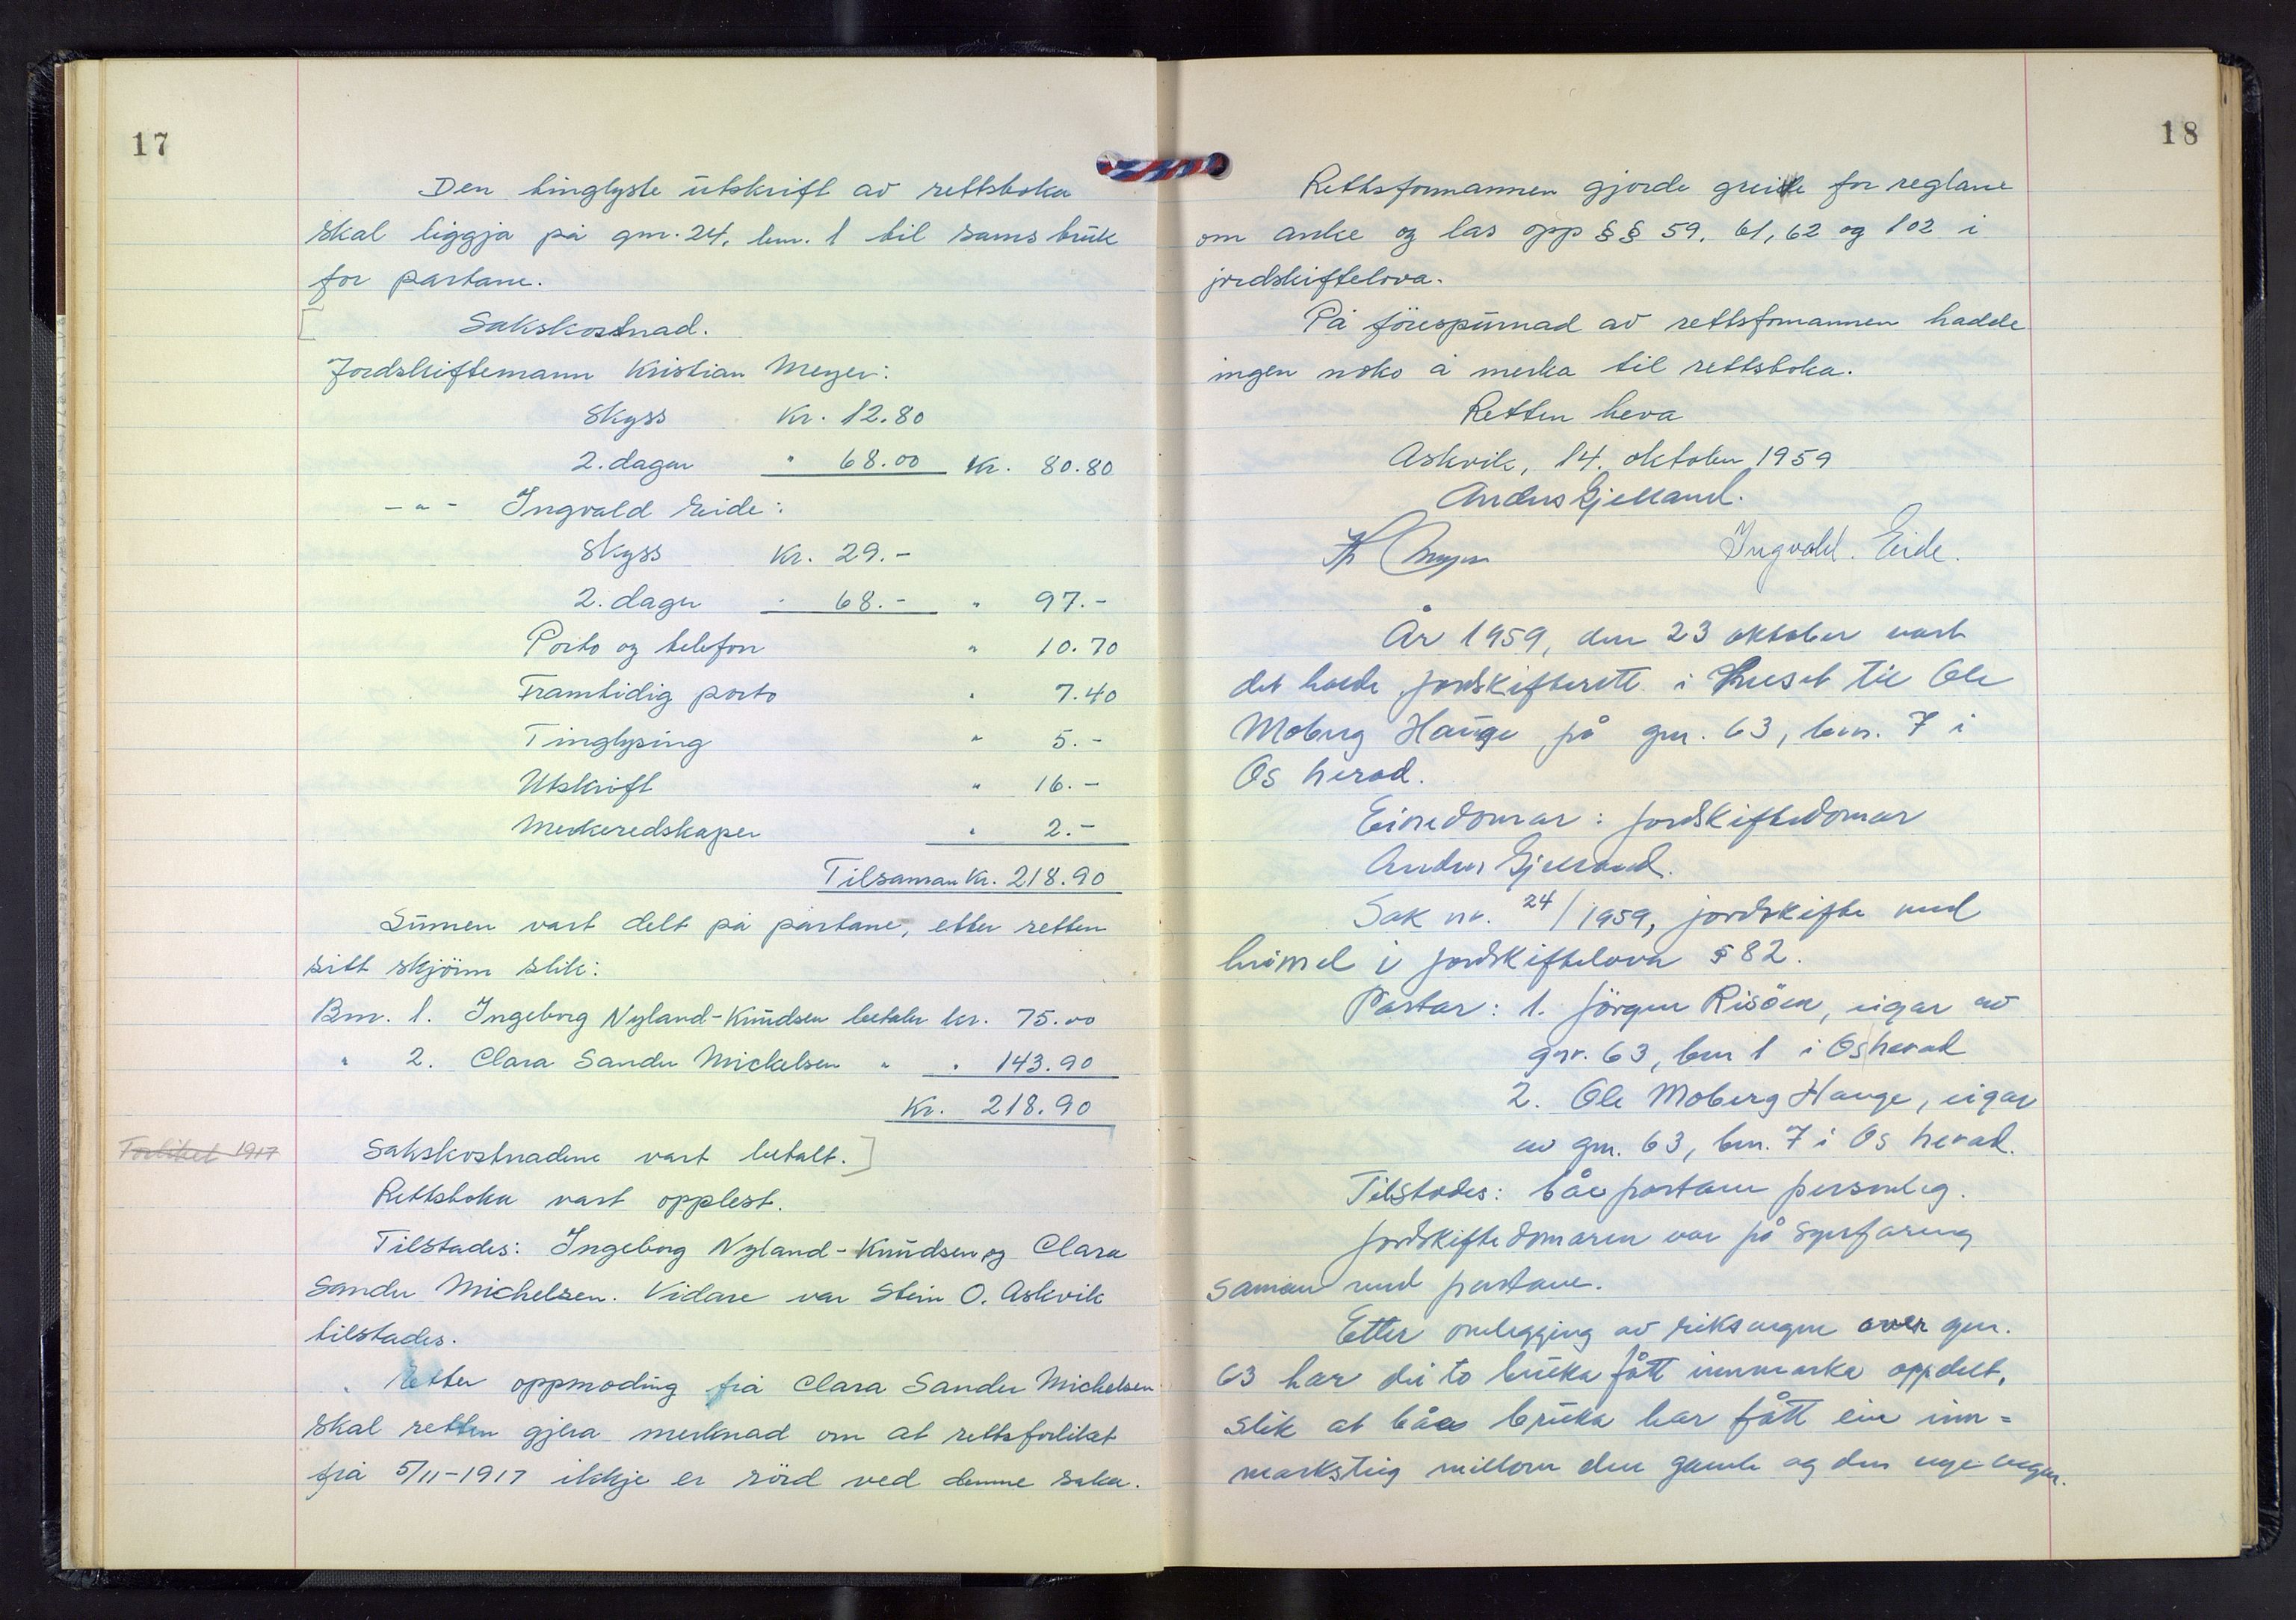 17
Den tinglyste utskrift av rettsboka
skal liggja på gnr. 24, bnr. 1 til sams bruk
for partane.
[ Sakskostnad.
Jordskiftemann Kristian Meyer:
Skyss Kr. 12.80
2. dagar " 68.00 Kr. 80.80
- " - Ingvald Eide:
Skyss Kr. 29.-
2. dagar " 68.- " 97.-
Porto og telefon " 10.70
Framtidig porto " 7.40
Tinglysing " 5.-
Utskrift " 16.-
Merkeredskaper " 2.-
Tilsaman Kr. 218.90
Sumen vart delt på partane, etter retten
sitt skjönn slik:
Bnr. 1. Ingeborg Nyland-Knudsen betaler kr. 75.00
" 2. Clara Sander Michelsen " " 143.90
Kr. 218.90
Forliket 1917
Sakskostnadene vart betalt.]
Rettsboka vart opplest.
Tilstades: Ingeborg Nyland-Knudsen og Clara
Sander Michelsen. Vidare var Stein O. Askvik
tilstades.
Etter oppmoding frå Clara Sander Michelsen
skal retten gjera merknad om at rettsforliket
frå 5/11-1917 ikkje er rörd ved denne saka.
18
Rettsformannen gjorde greide for reglane
om anke og las opp §§ 59, 61, 62 og 102 i
jordskiftelova.
På förespurnad av rettsformannen hadde
ingen noko å merka til rettsboka.
Retten heva
Askvik, 14. oktober 1959
Anders Gjelland.
Kr Meyer Ingvald. Eide.
År 1959, den 23 oktober vart
det halde jordskifterett i huset til Ole
Moberg Hauge på gnr. 63, bnr. 7 i
Os herad.
Einedomar: jordskiftedomar
Anders Gjelland.
Sak nr. 24/1959, jordskifte med
heimel i jordskiftelova § 82.
Partar: 1. Jörgen Risöen, eigar av
gnr. 63, bnr 1 i Os herad
2. Ole Moberg Hauge, eigar
av gnr. 63, bnr. 7 i Os herad.
Tilstades: båe partane personleg.
Jordskiftedomaren var på synfaring
saman med partane.
Etter omlegging av riksvegen over gnr.
63 har dei to bruka fått innmarka oppdelt,
slik at båe bruka har fått ein inn=
marksteig millom den gamle og den nye vegen.